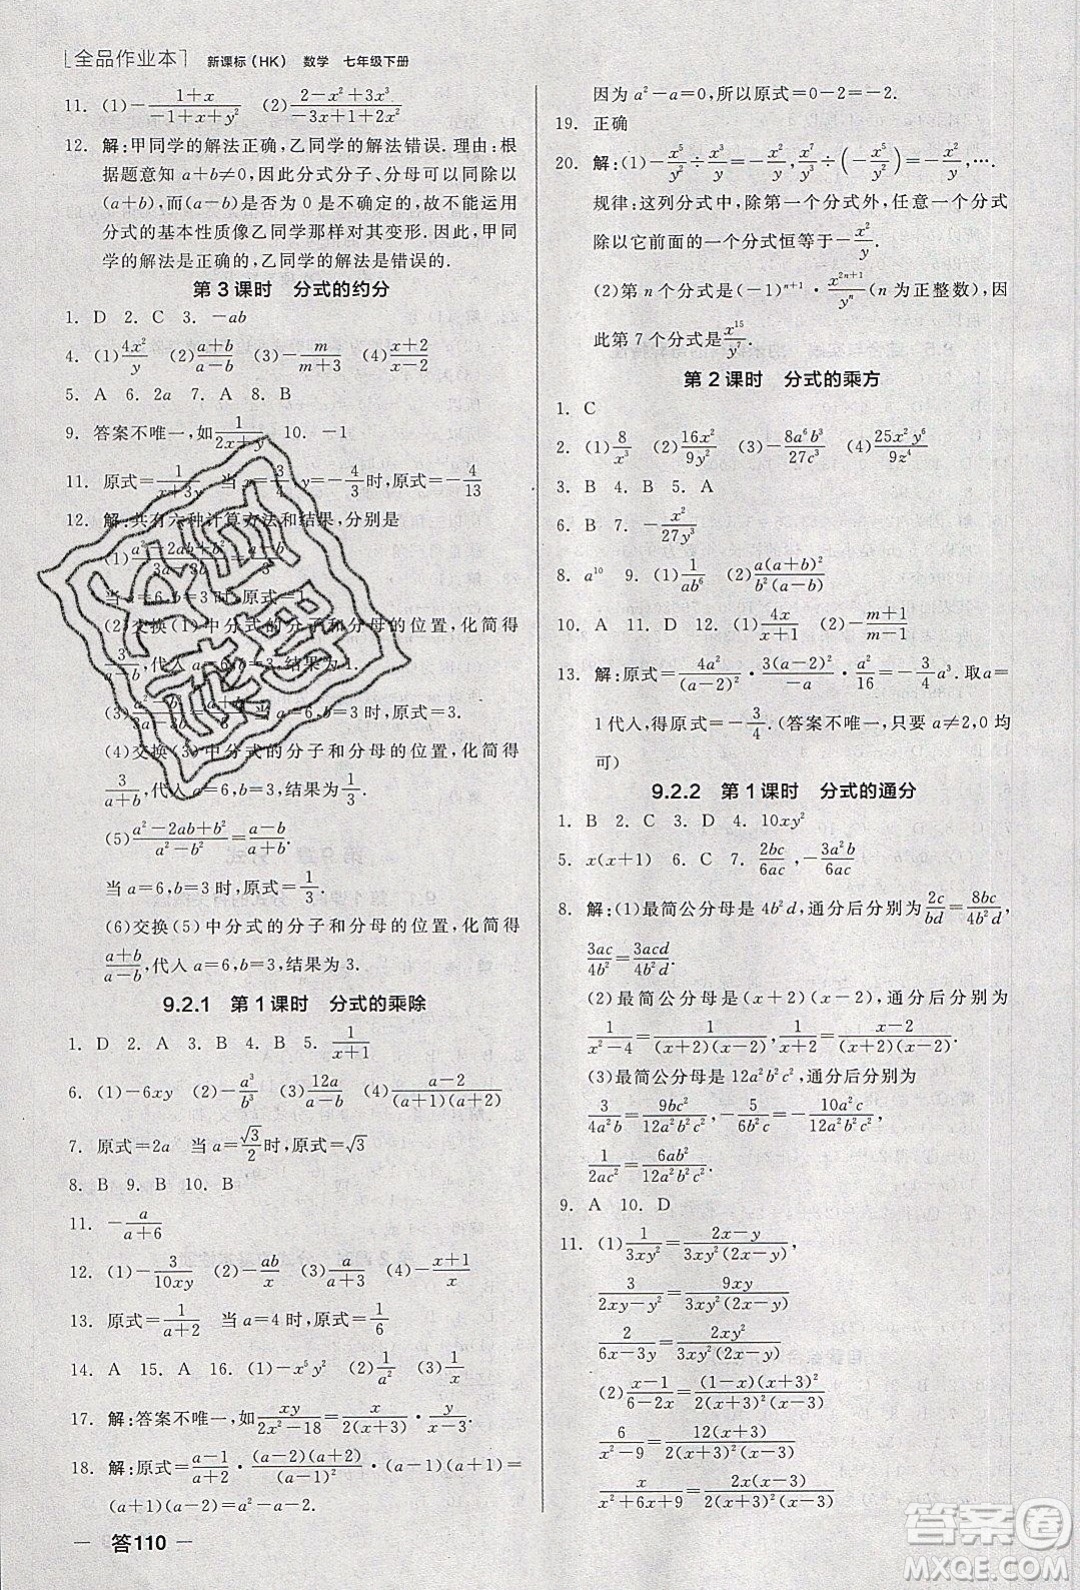 [全品作业本] 新课标(HK) 数学 七年级下册
11. (1)-(1+x)/(-1+x+y²) (2)(2-x²+3x³)/(-3x+1+2x²)
12. 解:甲同学的解法正确,乙同学的解法错误. 理由:根
据题意知 a+b≠0,因此分式分子、分母可以同除以
(a+b),而(a-b)是否为 0 是不确定的,故不能运用
分式的基本性质像乙同学那样对其变形. 因此,甲同
学的解法是正确的,乙同学的解法是错误的.
第 3 课时 分式的约分
1. D 2. C 3. -ab
4. (1)4x²/y (2)(a+b)/(a-b) (3)-m/(m+3) (4)(x+2)/(x-2)
5. A 6. 2a 7. A 8. B
9. 答案不唯一,如1/(2x+y) 10. -1
11. 原式=1/(x+3y) 当 x=1,y=-4/3时,原式=-4/13
12. 解:共有六种计算方法和结果,分别是
(1)(a²-2ab+b²)/(3a-3b)=(a-b)/3.
当 a=6,b=3时,原式=1.
(2)交换(1)中分式的分子和分母的位置,化简得
3/(a-b),代入 a=6,b=3,结果为 1.
当 a=6,b=3时,原式=3.
(4)交换(3)中分式的分子和分母的位置,化简得
3/(a+b),代入 a=6,b=3,结果为1/3.
(5)(a²-2ab+b²)/(a²-b²)=(a-b)/(a+b).
当 a=6,b=3时,原式=1/3.
(6)交换(5)中分式的分子和分母的位置,化简得
(a+b)/(a-b),代入 a=6,b=3,结果为 3.
9.2.1 第 1 课时 分式的乘除
1. D 2. A 3. B 4. B 5. 1/(x+1)
6. (1)-6xy (2)-a³/b³ (3)12a/(a-b) (4)(a-2)/((a+1)(a+2))
7. 原式=2a 当 a=√3/2时,原式=√3
8. B 9. B 10. B
11. -a/(a+6)
12. (1)-3/(10xy) (2)-ab/x (3)a/(a+3) (4)-(x+4)/x
13. 原式=1/(a+2) 当 a=4时,原式=1/6
14. A 15. A 16. (1)-x⁵y (2)1/a² (3)1/x
17. 解:答案不唯一,如xy/(2x²-18)=x/(2(x+3))·y/(x-3).
18. 解:原式=(a-1)/(a+2)·((a-2)(a+2))/(a-1)²·((a+1)(a-1))/1=
(a+1)(a-2)=a²-a-2.
因为 a²-a=0,所以原式=0-2=-2.
19. 正确
20. 解:(1)-x⁵/y²÷x³/y=-x²/y,x⁷/y³÷(-x⁵/y²)=-x²/y,….
规律:这列分式中,除第一个分式外,任意一个分式
除以它前面的一个分式恒等于-x²/y.
(2)第 n 个分式是(-1)ⁿ⁺¹·x²ⁿ⁺¹/yⁿ (n 为正整数),因
此第 7 个分式是x¹⁵/y⁷.
第 2 课时 分式的乘方
1. C
2. (1)8/x³ (2)16x²/9y² (3)-8a⁶b³/27c³ (4)25x²y⁶/9z⁴
3. B 4. B 5. A
6. B 7. -x²/27y³
8. a¹⁰ 9. (1)1/ab⁶ (2)a(a+b)/(b²(a-b))
10. A 11. D 12. (1)4x/(x+1) (2)-(m+1)/(m-1)
13. 解:原式=4a²/(a-2)²·3(a-2)²/(-a)·a²/16=-3/4a³. 取 a=
1代入,得原式=-3/4. (答案不唯一,只要 a≠2,0 均
可)
9.2.2 第 1 课时 分式的通分
1. B 2. C 3. D 4. 10xy²
5. x(x+1) 6. C 7. 2bc/6ac -3a²b/6ac
8. 解:(1)最简公分母是 4b²d,通分后分别为2c/bd=8bc/4b²d,
3ac/4b²=3acd/4b²d.
(2)最简公分母是(x+2)(x-2),通分后分别为
1/(x²-4)=1/((x+2)(x-2)),1/(x+2)=(x-2)/((x+2)(x-2)).
(3)最简公分母是 12a²b²c²,通分后分别为
3/4a²b=9bc²/12a²b²c²,-5/6b²c=-10a²c/12a²b²c²,
1/2ac²=6ab²/12a²b²c².
9. A 10. D
11. (1)1/(3x²-xy)=(2x-y)/(xy(3x-y)(2x-y)),
3/(2x-y)=9xy/…
(2)(x-1)/(6-2x)=((1-x)(x+3)²)/(2(x+3)²(x-3)),
6/(x²-9)=12(x+3)/(2(x+3)²(x-3)),
x/(x²+6x+9)=2x(x-3)/(2(x+3)²(x-3)).
— 答110 —
答案圈
MXQE.COM